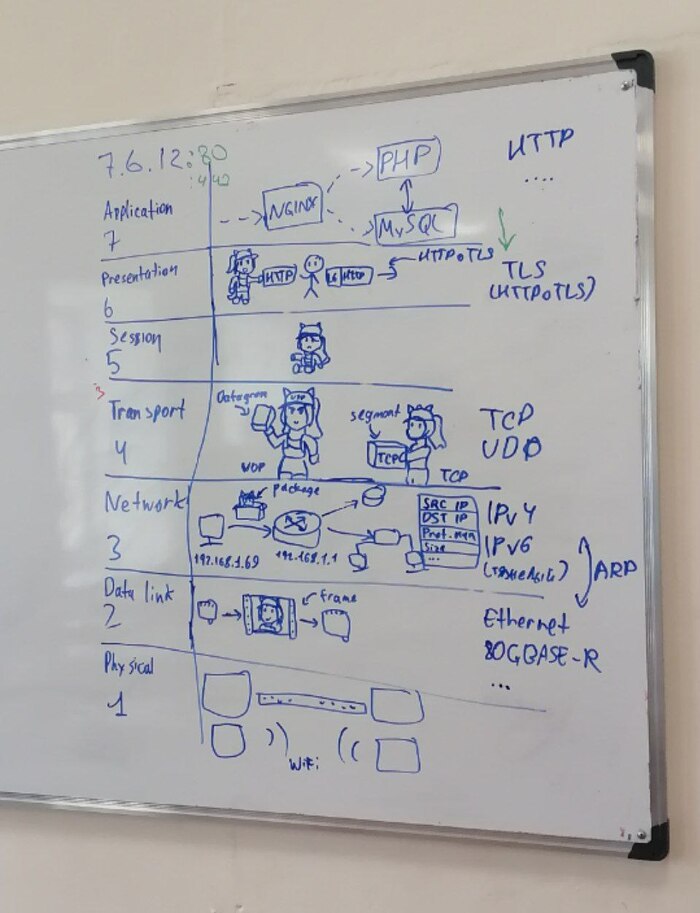 7.6.12:80
:443
HTTP
....
PHP
NGINX
MySQL
Application
7
HTTP over TLS
Presentation
6
HTTP
HTTP
TLS
(HTTP over TLS)
Session
5
3
Transport
4
Datagram
UDP
UDP
segment
TCP
TCP
TCP
UDP
Network
3
package
192.168.1.69
192.168.1.1
SRC IP
DST IP
Size
...
IPv4
IPv6
ARP
Data link
2
frame
Ethernet
...
Physical
1
WiFi